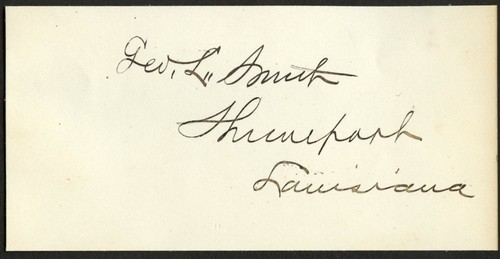 Geo. L. Smith
Shreveport
Louisiana